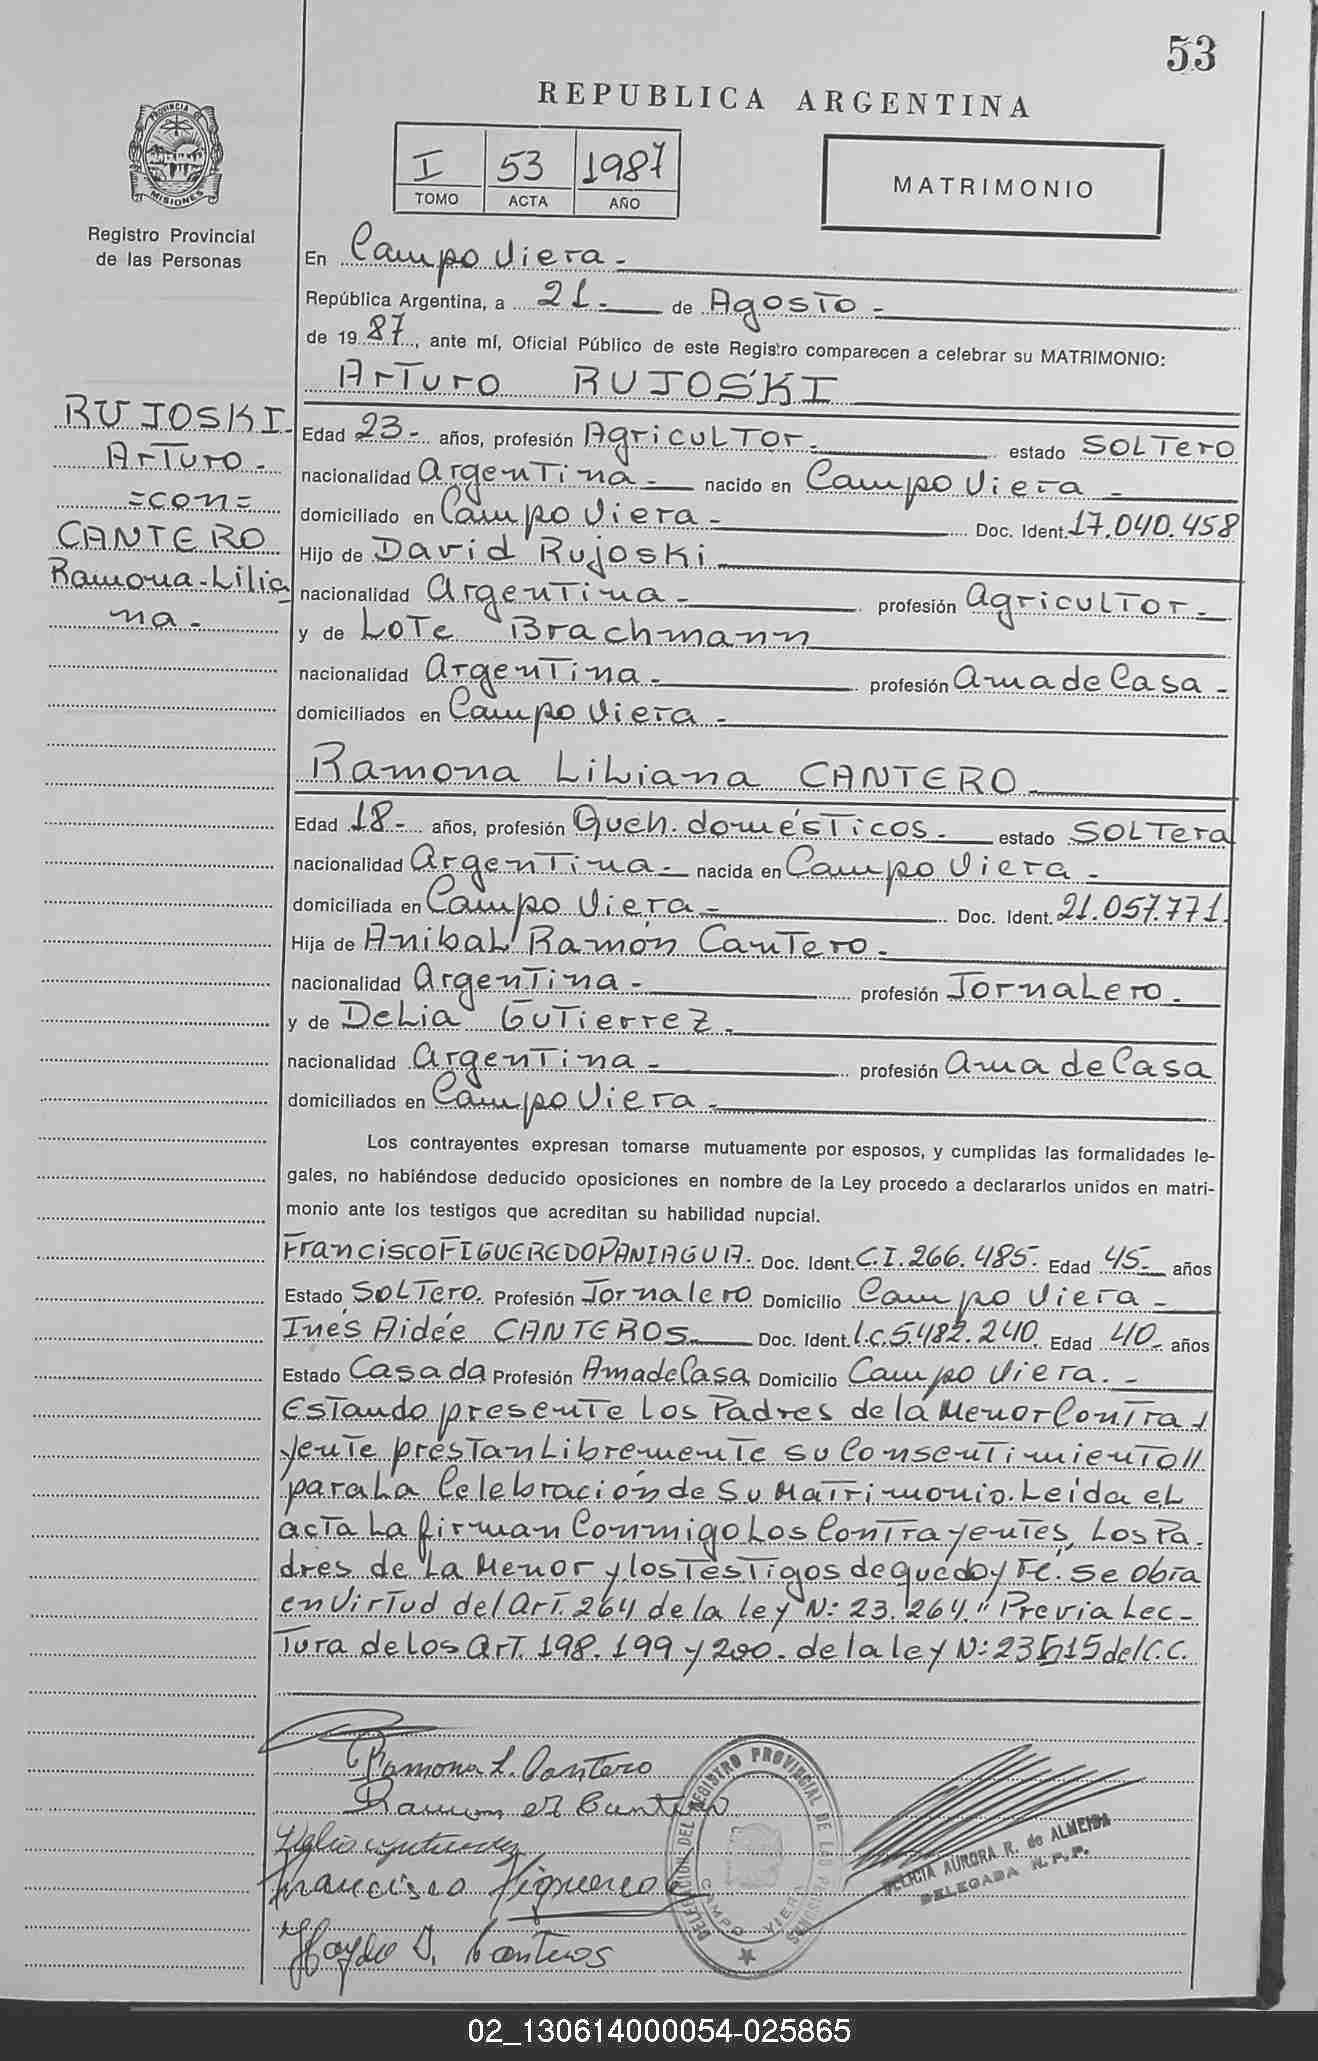 53
REPUBLICA ARGENTINA
PROVINCIA DE
MISIONES
Registro Provincial
de las Personas
I 53 1987
TOMO ACTA AÑO
MATRIMONIO
RUJOSKI
Arturo.-
=con=
CANTERO
Ramona-Lilia
na.-
En Campo Viera.-
República Argentina, a 21.- de Agosto.-
de 19 87, ante mí, Oficial Público de este Registro comparecen a celebrar su MATRIMONIO:
Arturo RUJOSKI
Edad 23.- años, profesión Agricultor.- estado SOLTERO
nacionalidad Argentina.- nacido en Campo Viera.-
domiciliado en Campo Viera.- Doc. Ident. 17.040.458
Hijo de David Rujoski
nacionalidad Argentina.- profesión Agricultor.-
y de Lote Brachmann
nacionalidad Argentina.- profesión Ama de Casa.-
domiciliados en Campo Viera.-
Ramona Liliana CANTERO.
Edad 18.- años, profesión Queh. domésticos.- estado SOLTERA
nacionalidad Argentina.- nacida en Campo Viera.-
domiciliada en Campo Viera.- Doc. Ident. 21.057.771.
Hija de Anibal Ramón Cantero.-
nacionalidad Argentina.- profesión Jornalero.-
y de Delia Gutierrez.-
nacionalidad Argentina.- profesión Ama de Casa
domiciliados en Campo Viera.-
Los contrayentes expresan tomarse mutuamente por esposos, y cumplidas las formalidades le-
gales, no habiéndose deducido oposiciones en nombre de la Ley procedo a declararlos unidos en matri-
monio ante los testigos que acreditan su habilidad nupcial.
Francisco FIGUEREDO PANIAGUA. Doc. Ident. C.I. 266.485. Edad 45.- años
Estado SOLTERO. Profesión Jornalero Domicilio Campo Viera.-
Inés Aidée CANTEROS.- Doc. Ident. L.C. 5.482.240. Edad 40.- años
Estado Casada Profesión Ama de Casa Domicilio Campo Viera.-
Estando presente los Padres de la Menor Contra/
yente prestan Libremente su Consentimiento//
para la Celebración de Su Matrimonio. Leída el
acta la firman Conmigo los Contrayentes, Los Pa.
dres de la Menor y los Testigos de que doy Fé. Se obra
en Virtud del Art. 264 de la ley N: 23.264. " Previa Lec-
tura de los Art. 198. 199 y 200. de la ley N: 23515 del C.C.
Ramona L. Cantero
Francisco Figueredo
DELEGACION DEL REGISTRO PROVINCIAL DE LAS PERSONAS
CAMPO VIERA
DELICIA AURORA R. de ALMEIDA
DELEGADA R.P.P.
02_130614000054-025865